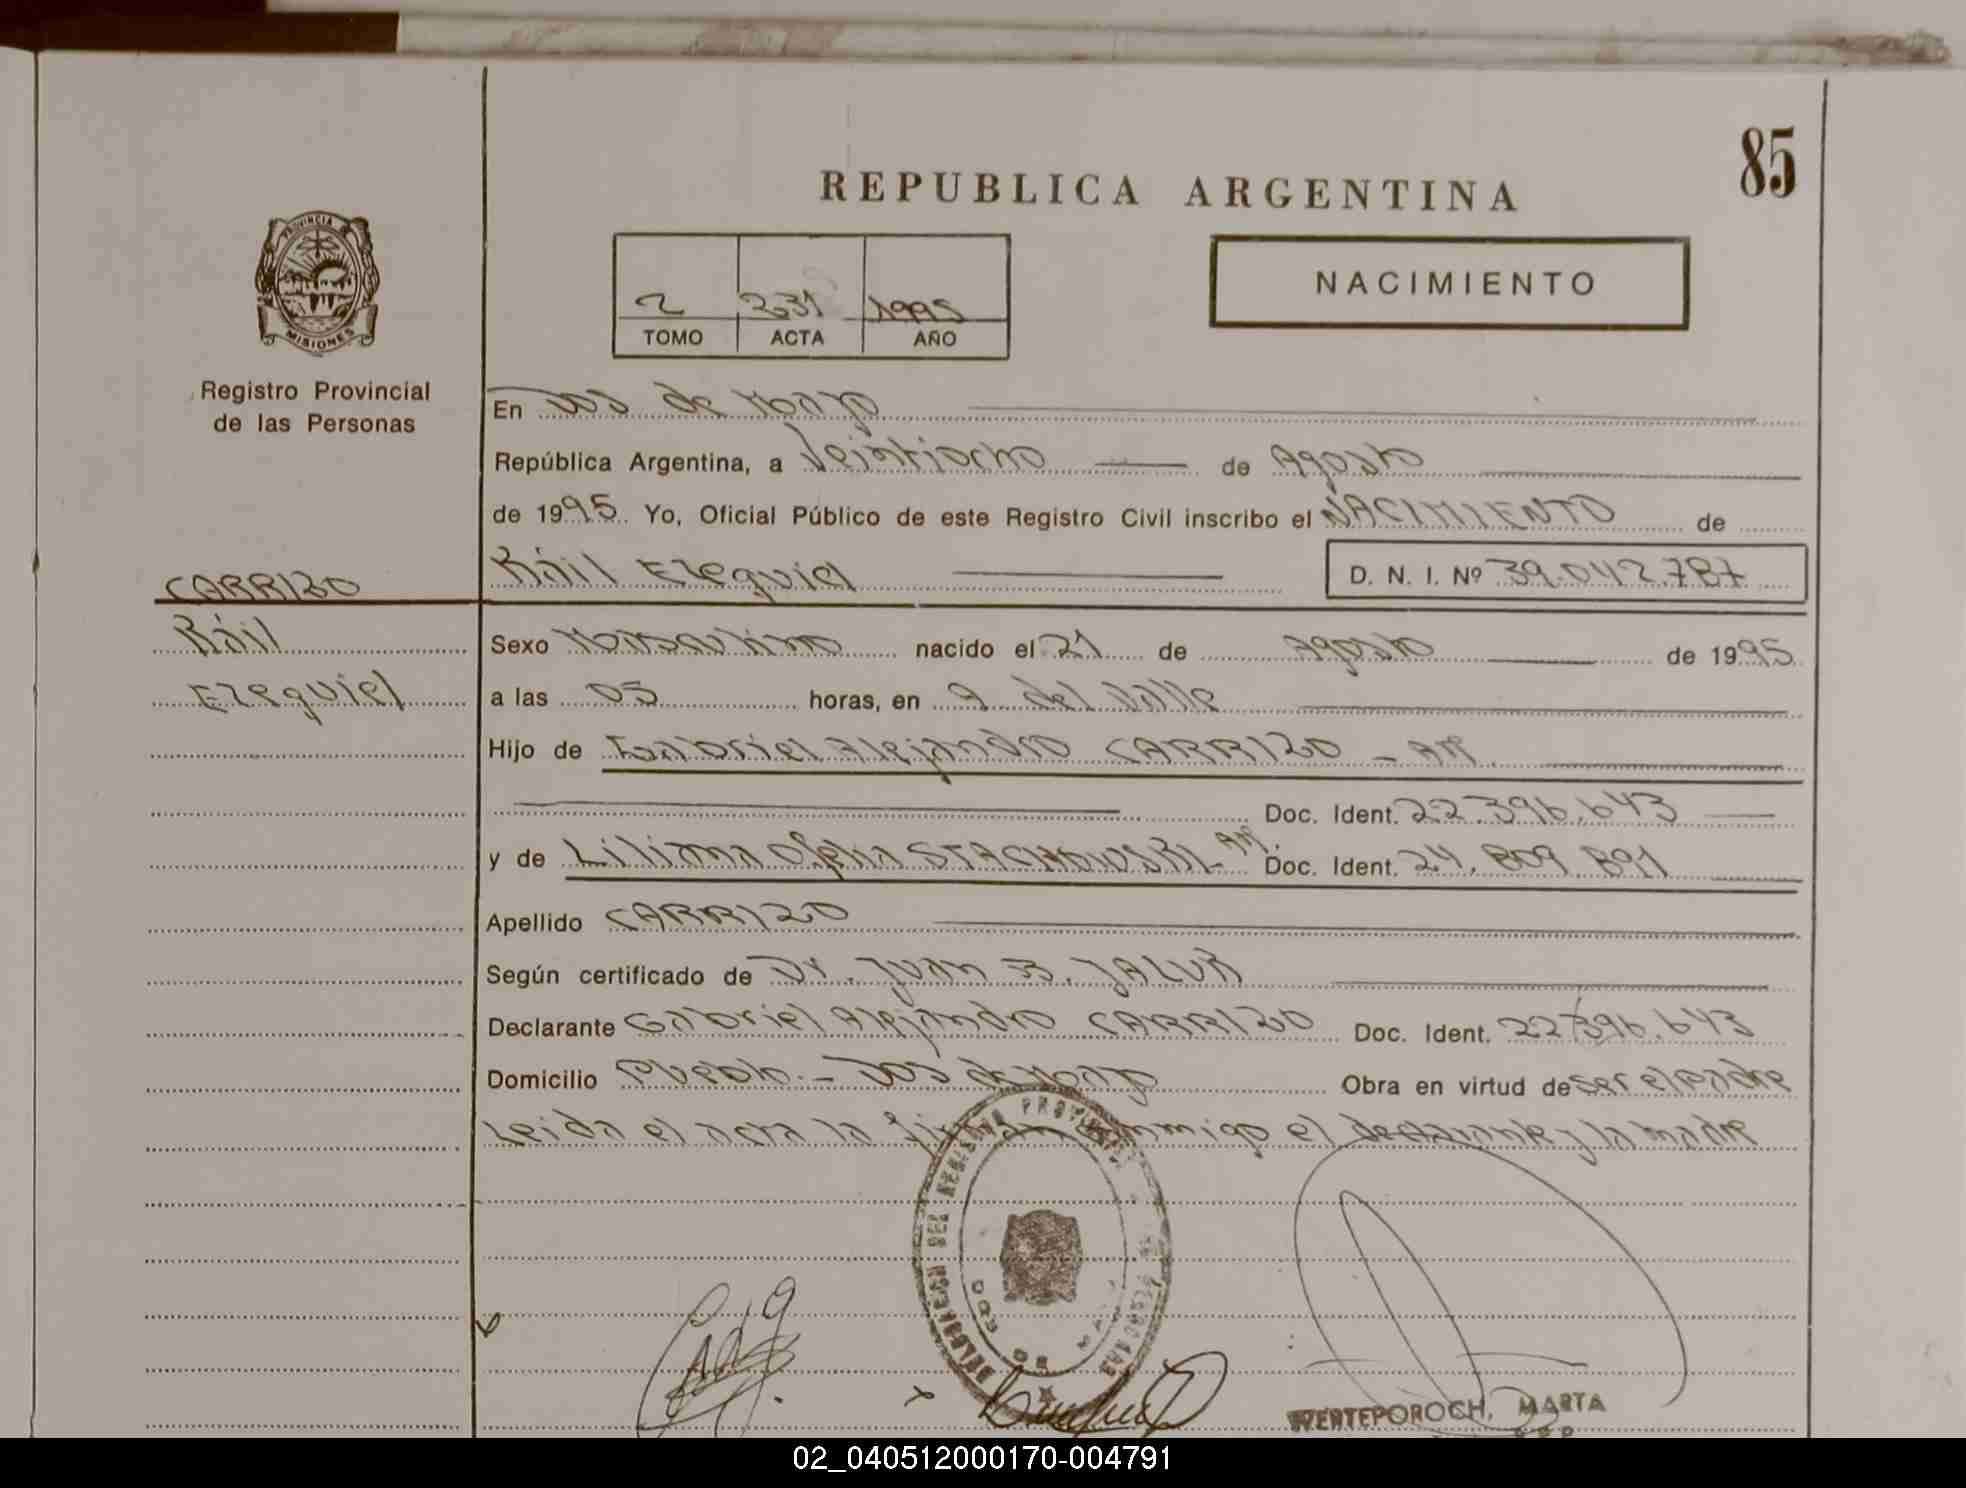 85
REPUBLICA ARGENTINA
PROVINCIA DE
MISIONES
Registro Provincial
de las Personas
NACIMIENTO
2 231 1995
TOMO ACTA AÑO
En Dos de Mayo
República Argentina, a Veintiocho de Agosto
de 1995 Yo, Oficial Público de este Registro Civil inscribo el NACIMIENTO de
Rául Ezequiel D. N. I. Nº 39.042.787
CARRIZO
Rául
Ezequiel
Sexo Masculino nacido el 21 de Agosto de 1995
a las 05 horas, en A del Valle
Hijo de Gabriel Alejandro CARRIZO - AR
Doc. Ident. 22.396.643
y de Liliana Ofelia STACHOWSKI - AR. Doc. Ident. 24.809.891
Apellido CARRIZO
Según certificado de Dr. Juan B. JALUR
Declarante Gabriel Alejandro CARRIZO Doc. Ident. 22.396.643
Domicilio Pueblo. - Dos de Mayo Obra en virtud de ser el padre
Leida el acta la firman conmigo el declarante y la madre
DELEGACION DEL REGISTRO PROVINCIAL
DOS DE MAYO
WERTEPOROCH, MARTA
02_040512000170-004791